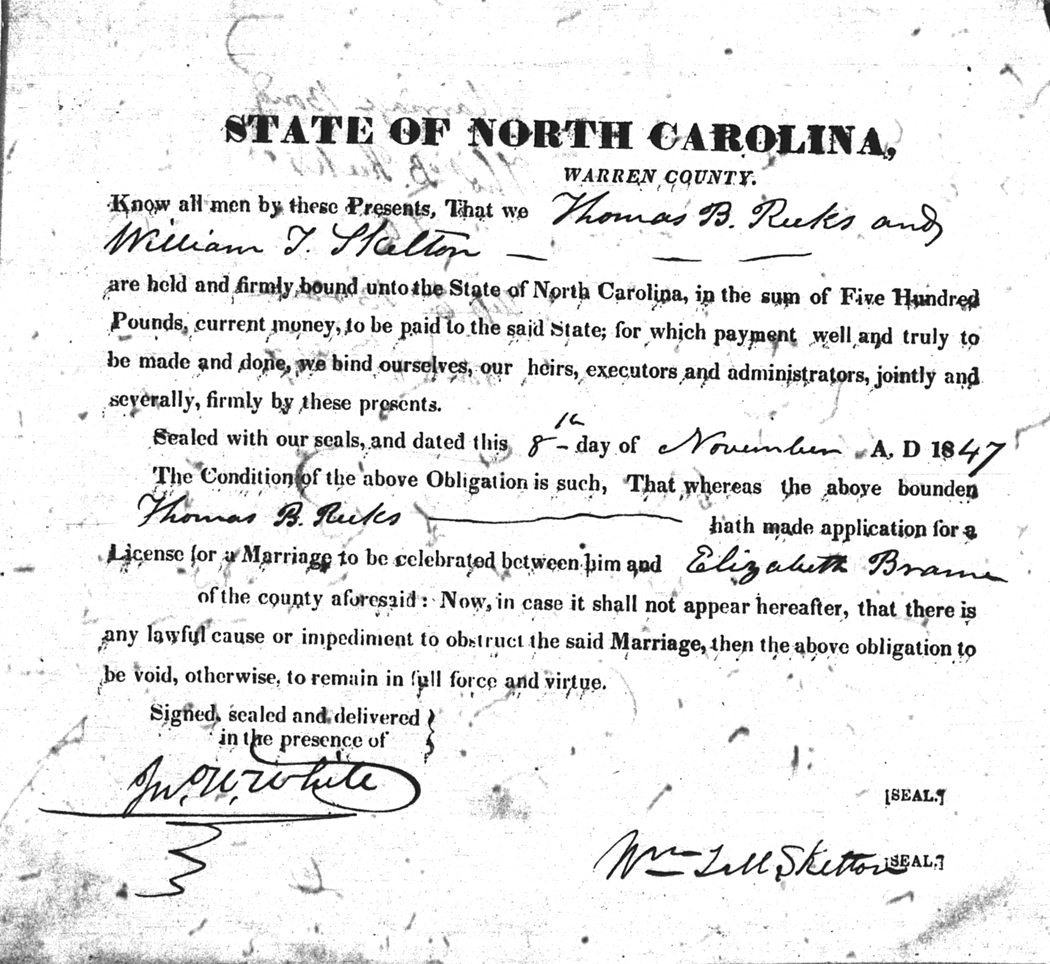 STATE OF NORTH CAROLINA,
WARREN COUNTY.
Know all men by these Presents, That we Thomas B. Reeks and
William T. Skelton
are held and firmly bound unto the State of North Carolina, in the sum of Five Hundred
Pounds, current money, to be paid to the said State; for which payment well and truly to
be made and done, we bind ourselves, our heirs, executors and administrators, jointly and
severally, firmly by these presents.
Sealed with our seals, and dated this 8th day of November A, D 1847
The Condition of the above Obligation is such, That whereas the above bounden
Thomas B. Reeks hath made application for a
License for a Marriage to be celebrated between him and Elizabeth Brame
of the county aforesaid: Now, in case it shall not appear hereafter, that there is
any lawful cause or impediment to obstruct the said Marriage, then the above obligation to
be void, otherwise, to remain in full force and virtue.
Signed, sealed and delivered }
in the presence of
Jno. W. White
[SEAL.]
Wm Skelton [SEAL.]